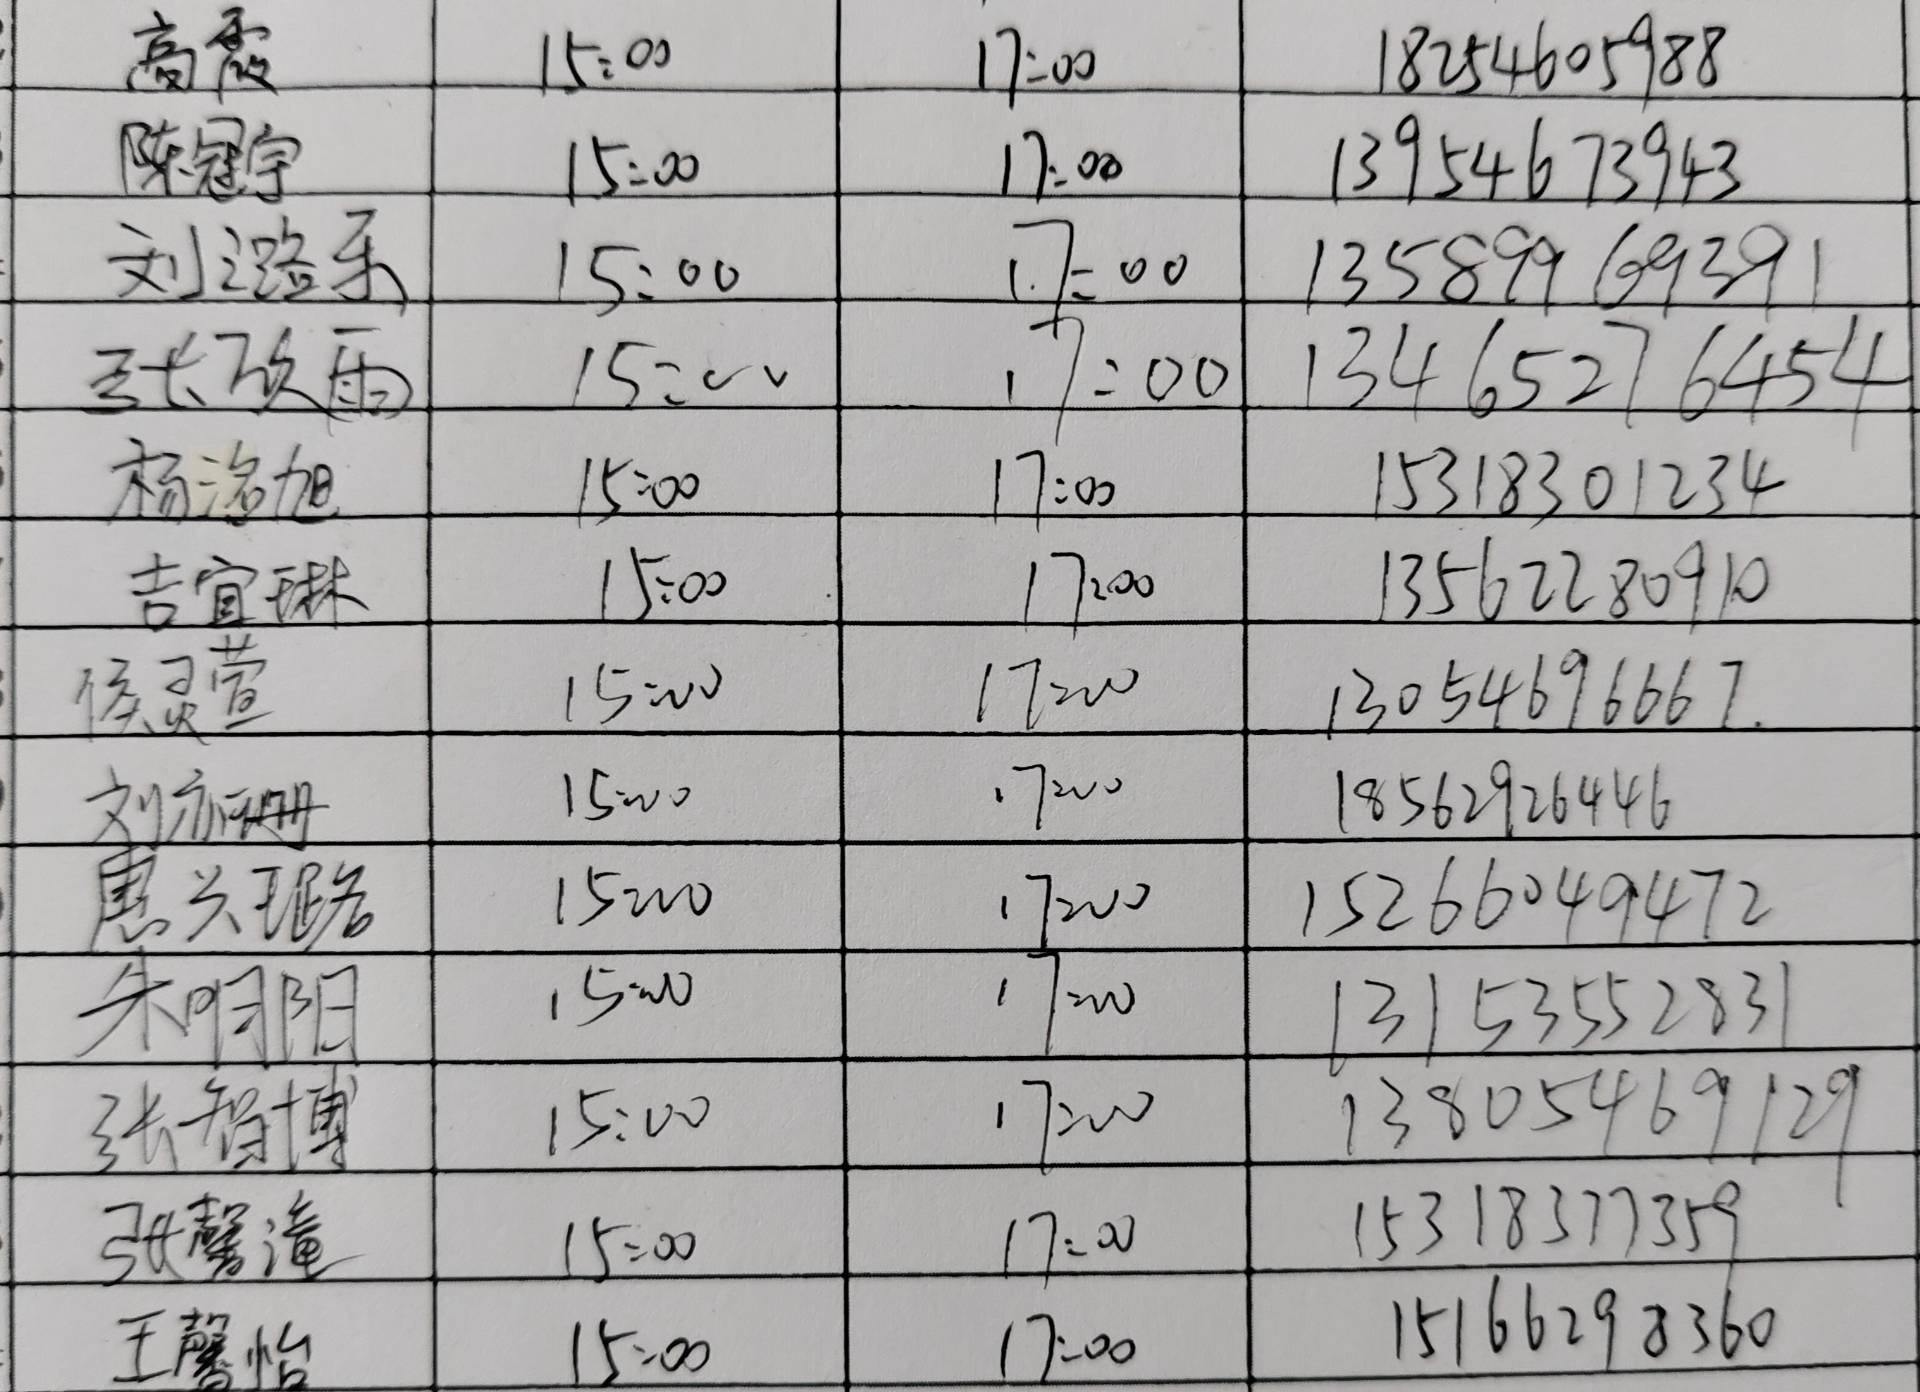 高霞 15:00 17:00 18254605988
陈冠宇 15:00 17:00 13954673943
刘潞乐 15:00 17:00 13589969391
张欣雨 15:00 17:00 13465276454
杨洺旭 15:00 17:00 15318301234
吉宜琳 15:00 17:00 13562280910
侯灵萱 15:00 17:00 13054696667.
刘亦珊 15:00 17:00 18562926446
惠兴琚 15:00 17:00 15266049472
朱明阳 15:00 17:00 13153552831
张智博 15:00 17:00 13805469129
张馨滝 15:00 17:00 15318377359
王馨怡 15:00 17:00 15166298360